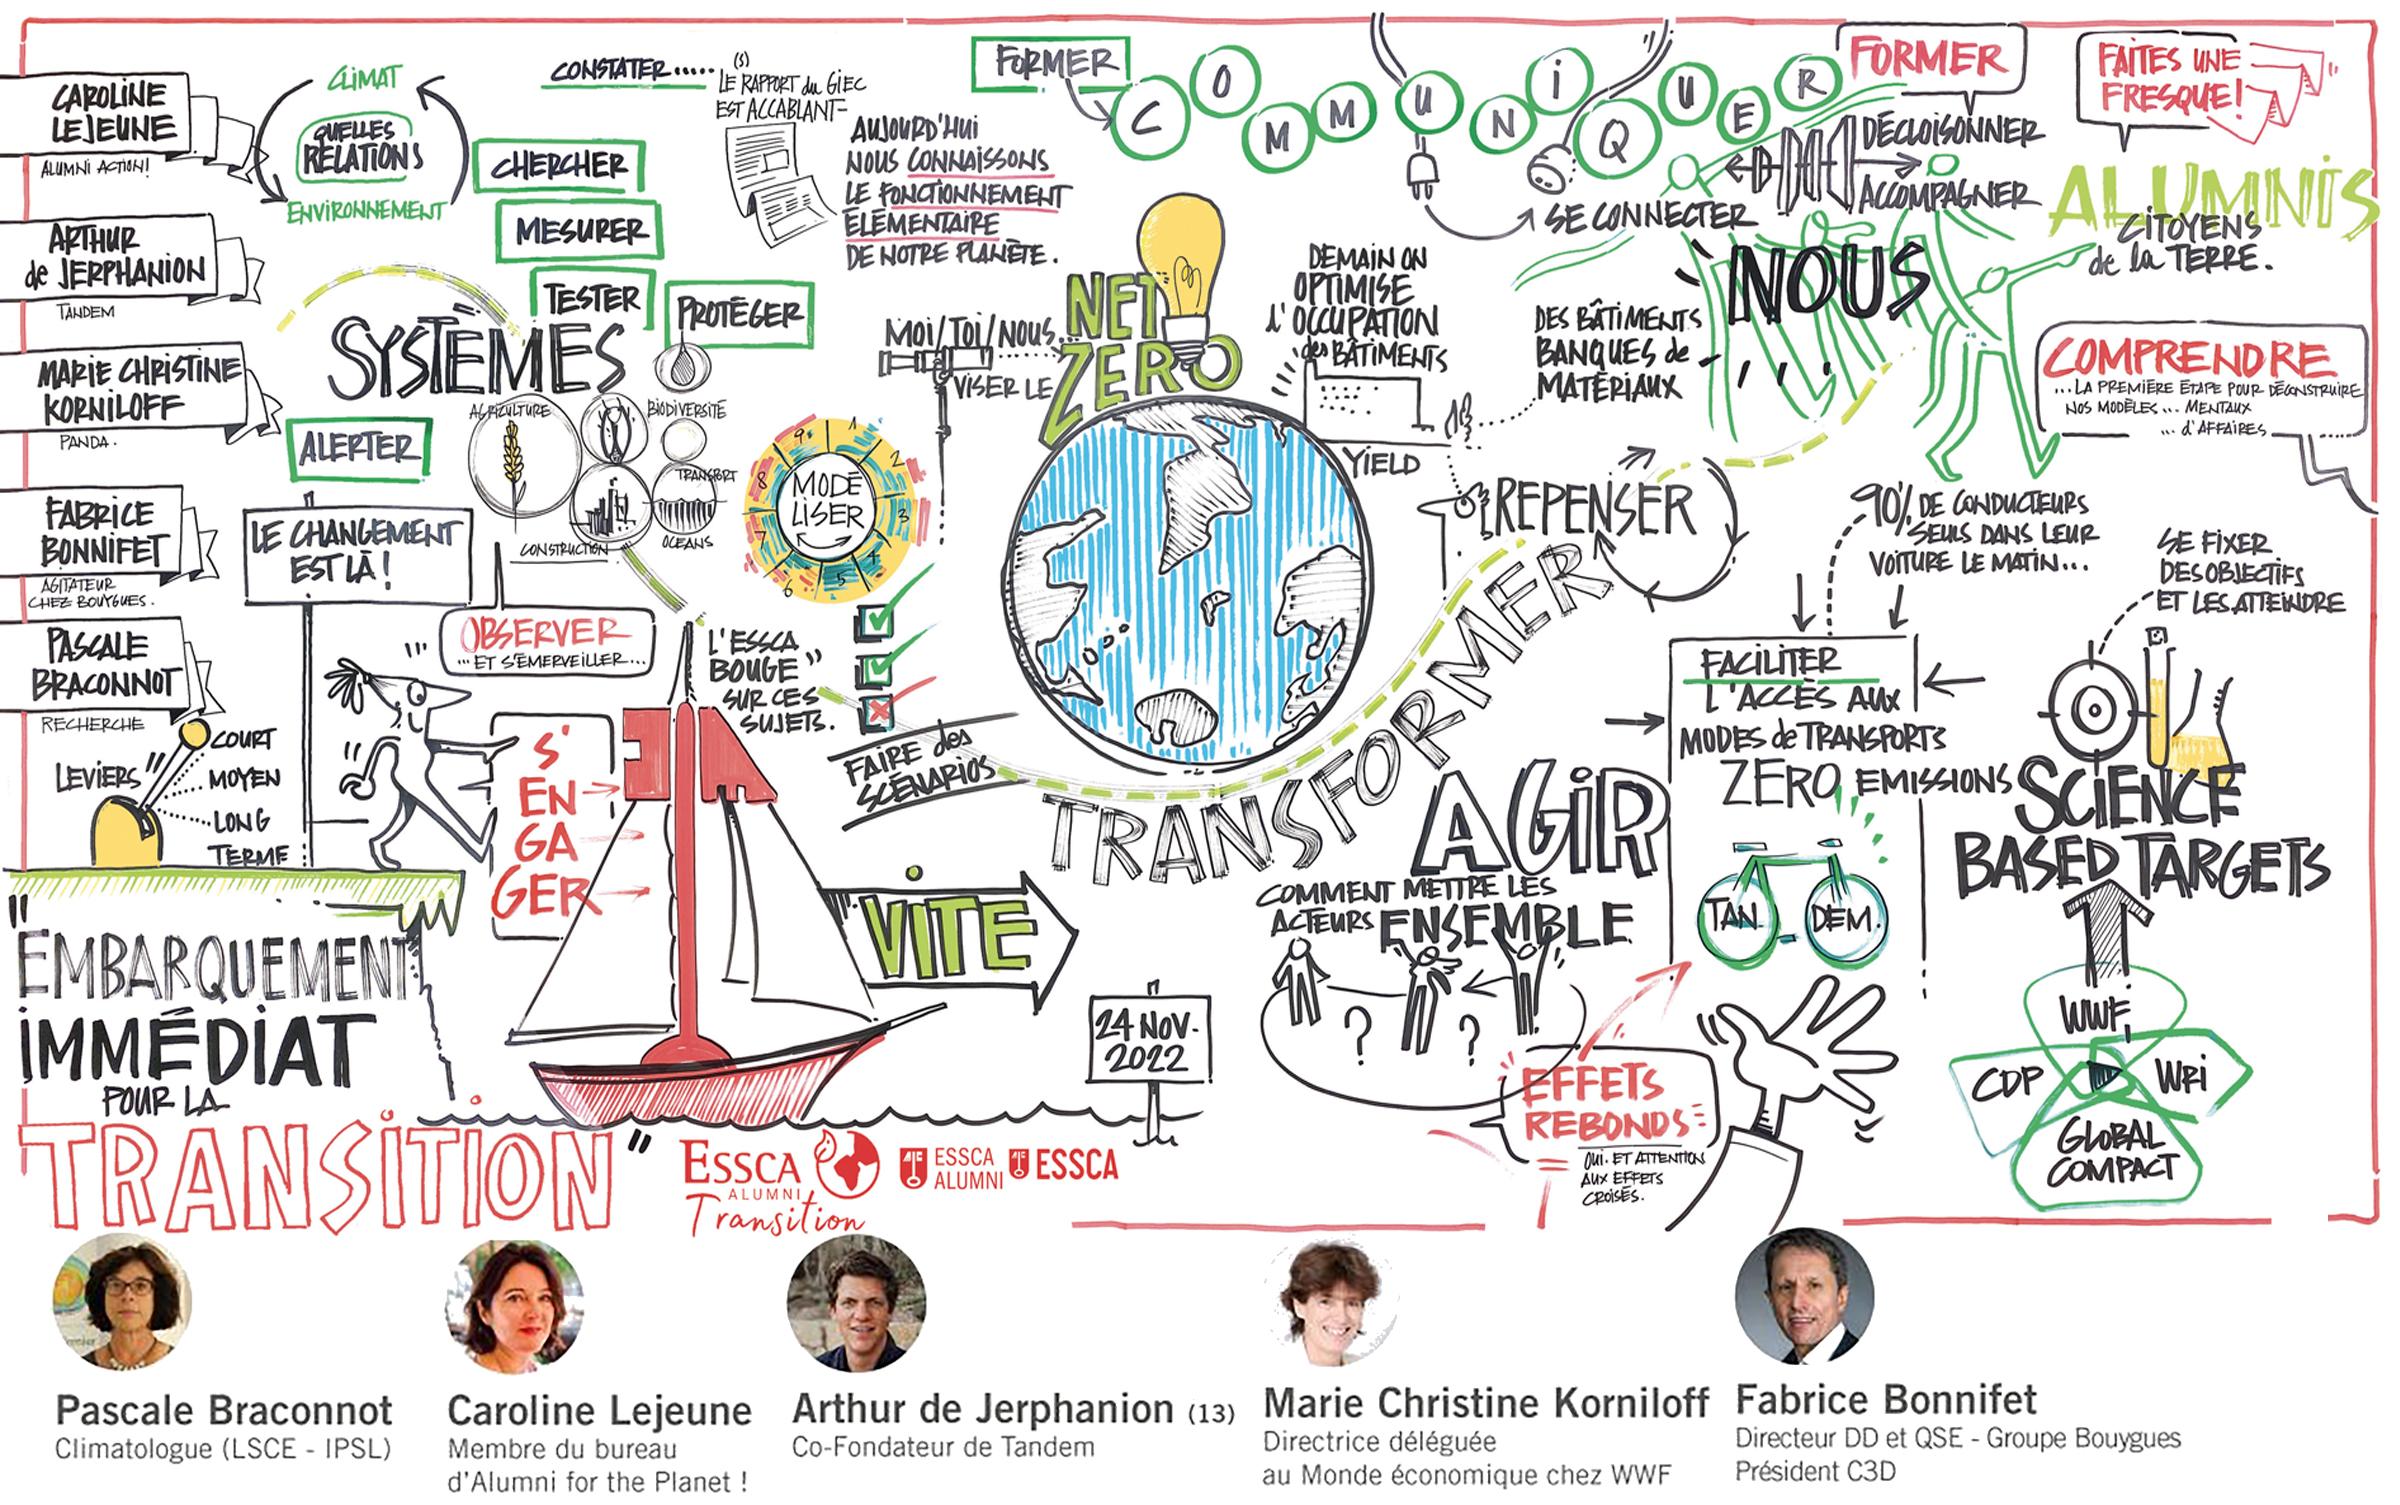 CAROLINE
LEJEUNE
ALUMNI ACTION!
ARTHUR
de JERPHANION
TANDEM
MARIE CHRISTINE
KORNILOFF
PANDA.
FABRICE
BONNIFET
AGITATEUR
CHEZ BOUYGUES.
PASCALE
BRACONNOT
RECHERCHE
CLIMAT
QUELLES
RELATIONS
ENVIRONNEMENT
CONSTATER.....
(S)
LE RAPPORT du GIEC
EST ACCABLANT-
CHERCHER
MESURER
TESTER
PROTÉGER
AUJOURD'HUI
NOUS CONNAISSONS
LE FONCTIONNEMENT
ÉLÉMENTAIRE
DE NOTRE PLANÈTE.
SYSTÈMES
AGRICULTURE
BIODIVERSITÉ
TRANSPORT
CONSTRUCTION
OCEANS
ALERTER
LE CHANGEMENT
EST LÀ!
OBSERVER
... ET S'ÉMERVEILLER...
LEVIERS"
COURT
MOYEN
LONG
TERME
S'
EN
GA
GER
"EMBARQUEMENT
IMMÉDIAT
POUR LA
TRANSITION"
L'ESSCA
BOUGE"
SUR CES
SUJETS.
1
2
3
4
5
6
7
8
9
MODÉ
LISER
FAIRE des
SCÉNARIOS
VITE
24 NOV.
2022
MOI/TOI/NOUS...
VISER LE
NET
ZERO
FORMER
COMMUNIQUER
SE CONNECTER
FORMER
DÉCLOISONNER
ACCOMPAGNER
FAITES UNE
FRESQUE!
ALUMNIS
CITOYENS
de la TERRE.
NOUS
COMPRENDRE
...LA PREMIÈRE ÉTAPE POUR DÉCONSTRUIRE
NOS MODÈLES... MENTAUX
... d'AFFAIRES
DEMAIN ON
OPTIMISE
l'OCCUPATION
des BÂTIMENTS
YIELD
DES BÂTIMENTS
BANQUES de
MATÉRIAUX
REPENSER
TRANSFORMER
90% DE CONDUCTEURS
SEULS DANS LEUR
VOITURE LE MATIN...
FACILITER
L'ACCÈS AUX
MODES de TRANSPORTS
ZERO EMISSIONS
TAN DEM
SE FIXER
DES OBJECTIFS
ET LES ATTEINDRE
SCIENCE
BASED TARGETS
WWF
CDP
WRi
GLOBAL
COMPACT
AGIR
COMMENT METTRE LES
ACTEURS ENSEMBLE
?
?
EFFETS
REBONDS
OUI. ET ATTENTION
AUX EFFETS
CROISÉS.
ESSCA
ALUMNI
Transition
ESSCA
ALUMNI
ESSCA
Pascale Braconnot
Climatologue (LSCE - IPSL)
Caroline Lejeune
Membre du bureau
d'Alumni for the Planet !
Arthur de Jerphanion (13)
Co-Fondateur de Tandem
Marie Christine Korniloff
Directrice déléguée
au Monde économique chez WWF
Fabrice Bonnifet
Directeur DD et QSE - Groupe Bouygues
Président C3D